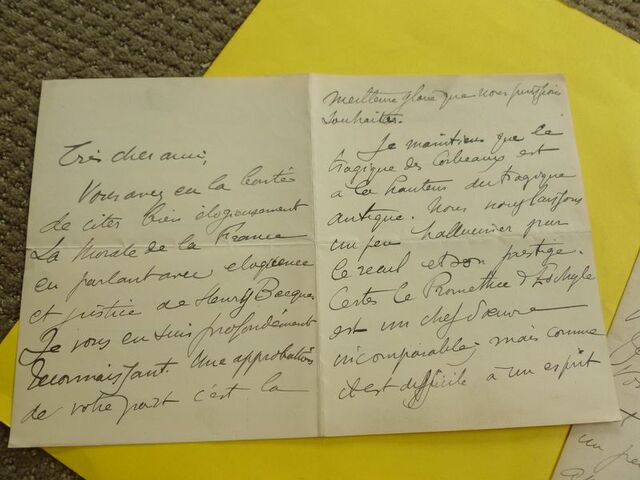 Très cher ami,
Vous avez eu la bonté
de citer bien élogieusement
La Morale de la France
en parlant avec eloquence
et justice de Henry Becque
Je vous en suis profondément
reconnaissant. Une approbation
de votre part c'est la
meilleure gloire que nous puissions
souhaiter.
Je maintiens que le
tragique des Corbeaux est
à la hauteur du tragique
antique. Nous nous laissons
un peu halluciner par
le recul et son prestige.
Certes le Promethée d'Eschyle
est un chef d'œuvre
incomparable; mais comme
il est difficile à un esprit
un pe